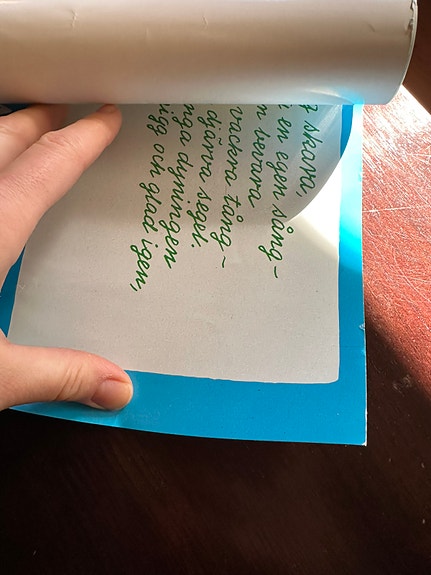 skara,
en egen sång~
bevara
vackra tång~
djärva segel.
nga dyningen
igg och glad igen,